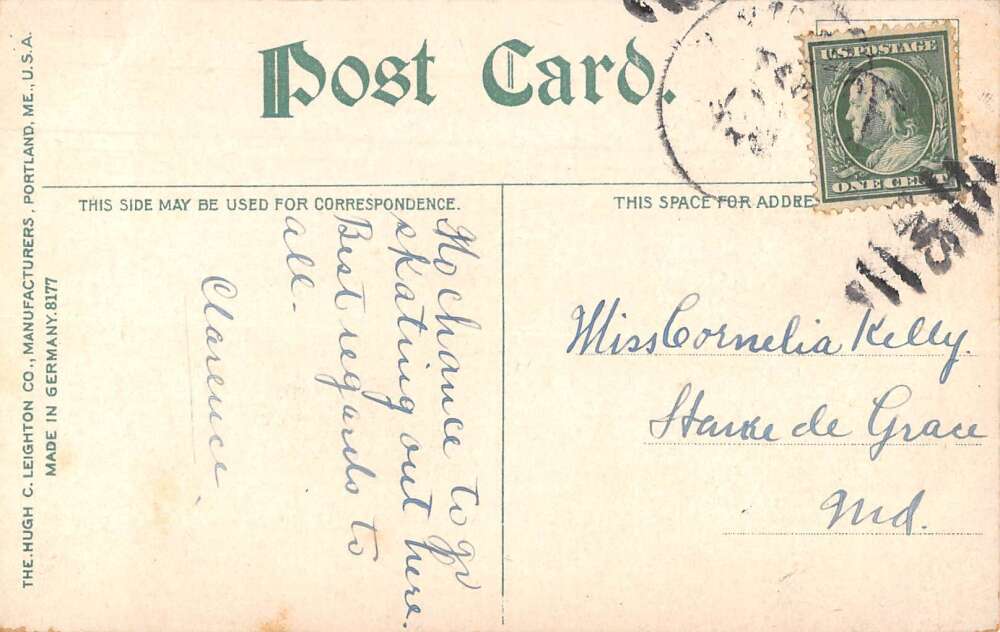 Post Card.
U.S. POSTAGE
ONE CENT
THIS SIDE MAY BE USED FOR CORRESPONDENCE.
THIS SPACE FOR ADDRE
No chance to go
skating out here.
Best regards to
all.
Clarence
Miss Cornelia Kelly.
Havre de Grace
Md.
THE.HUGH C. LEIGHTON CO., MANUFACTURERS, PORTLAND, ME., U.S.A.
MADE IN GERMANY. 8177